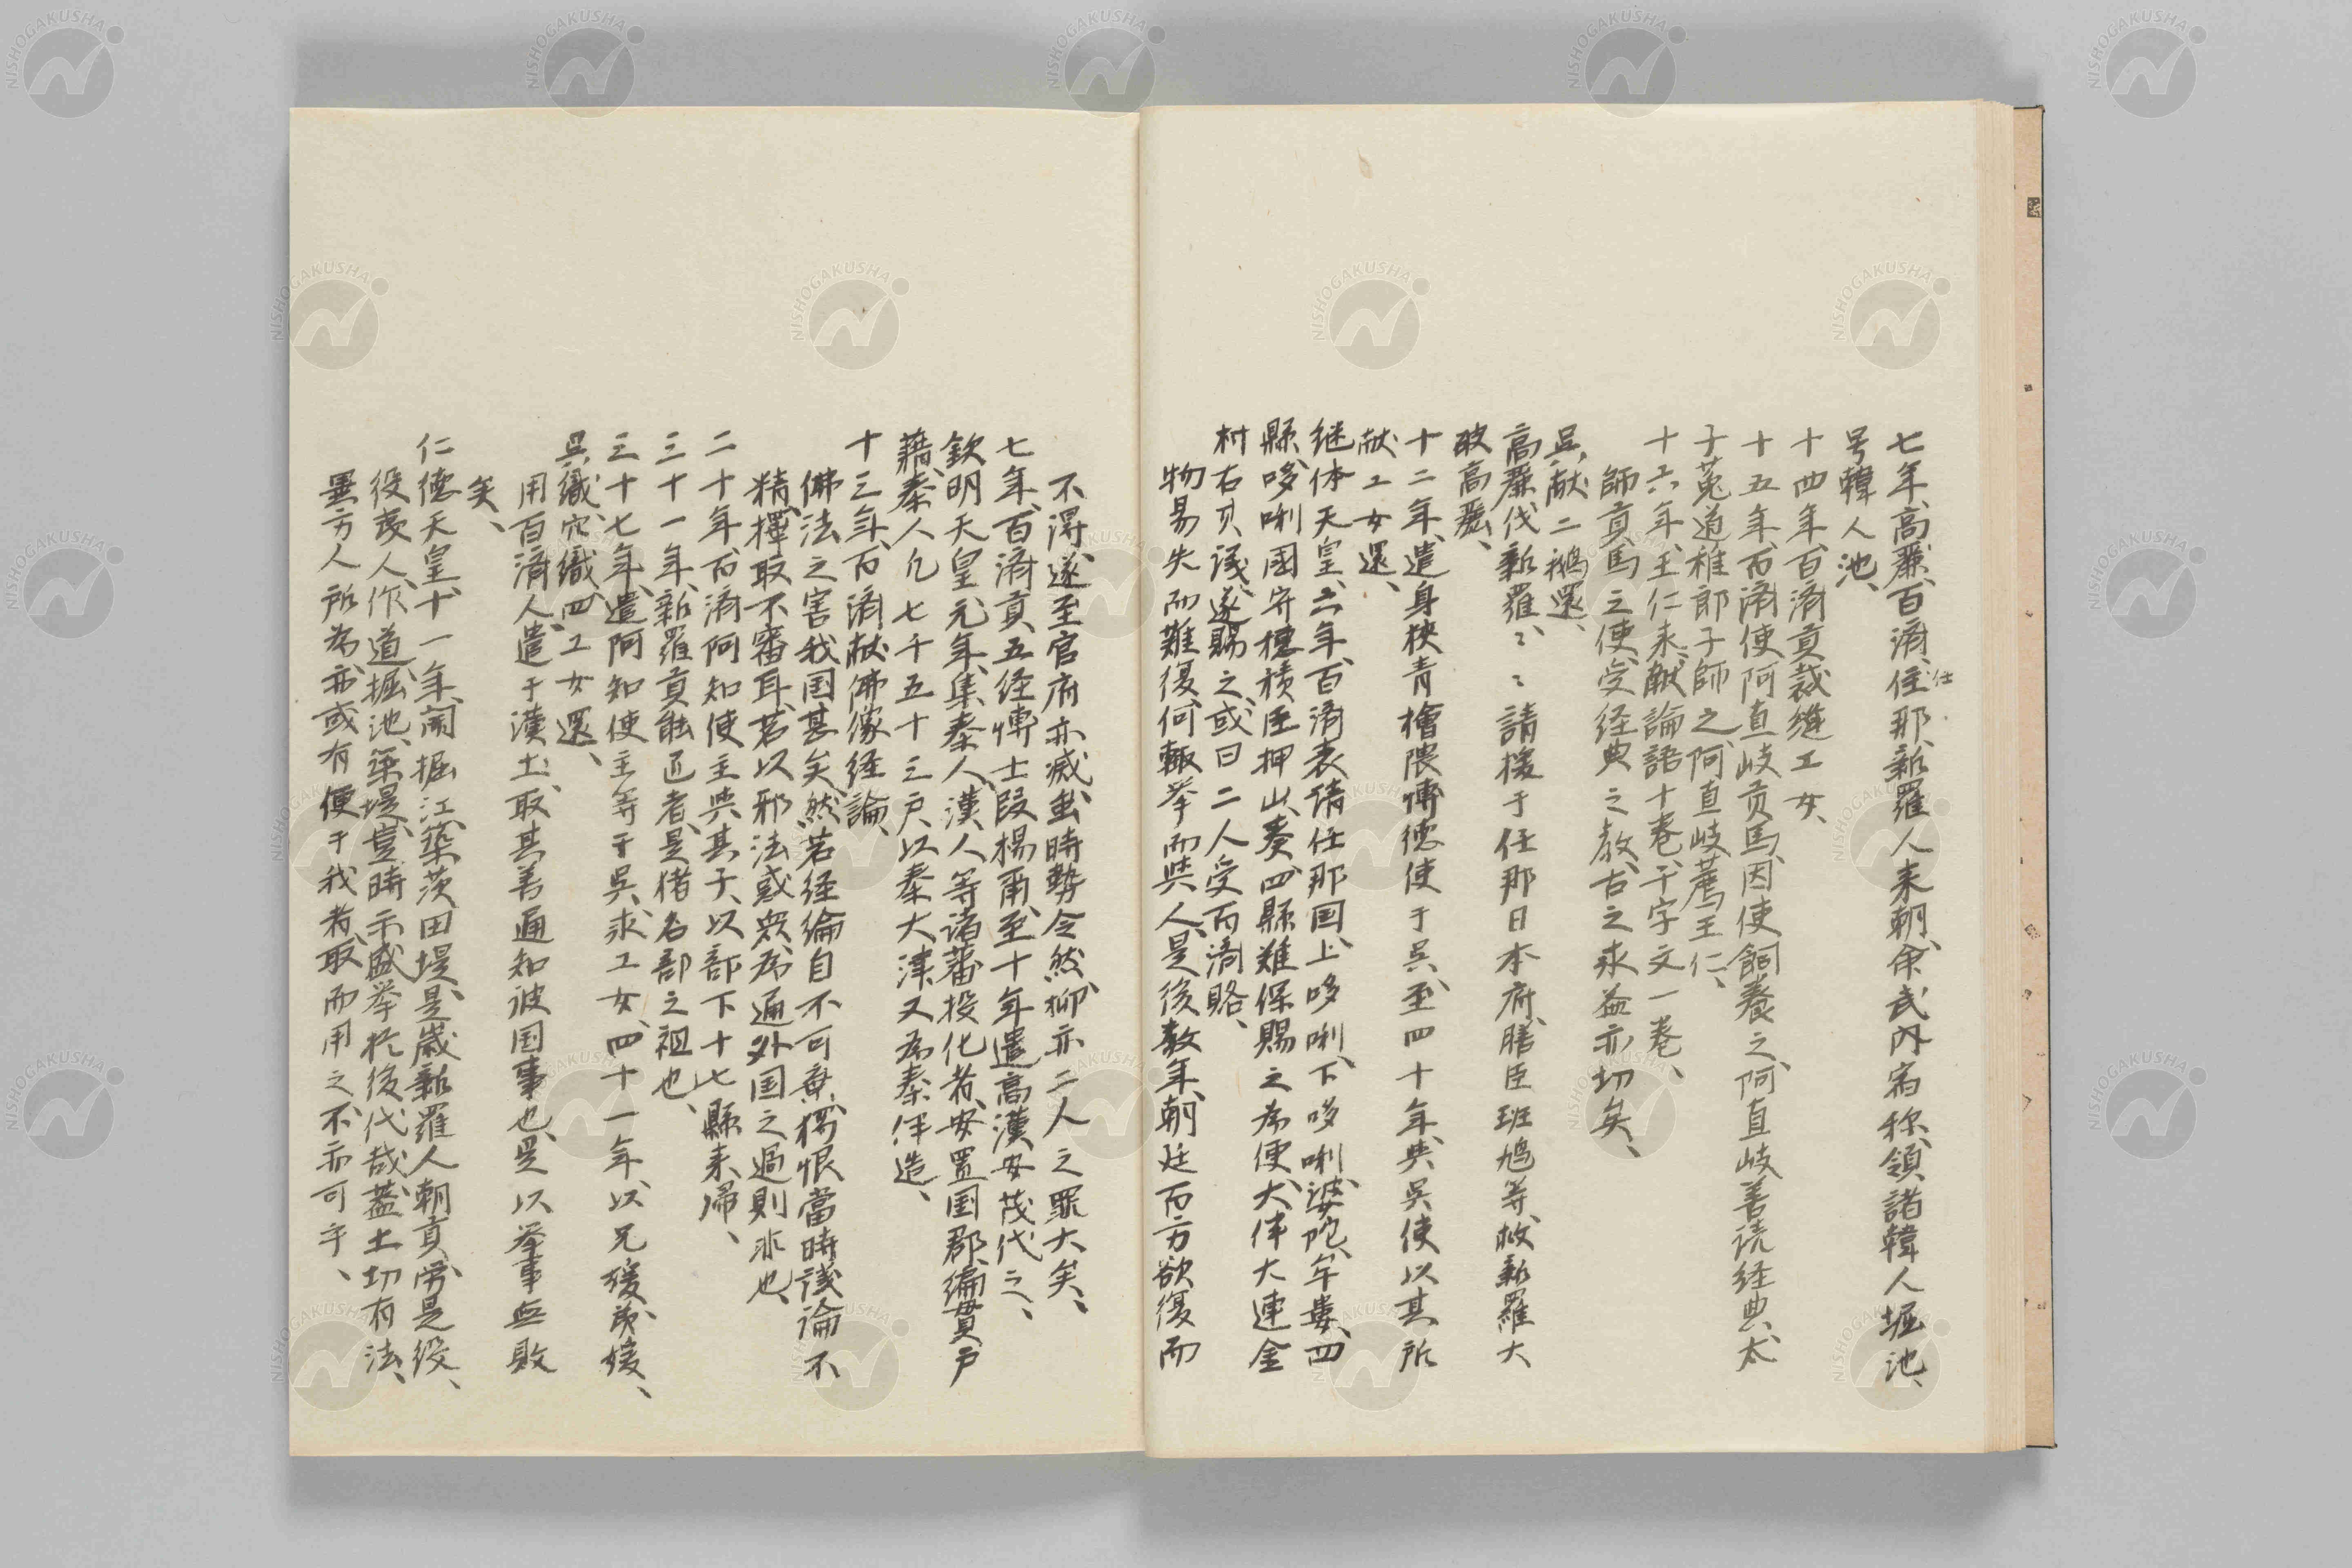 七年、高麗、百済、住那、新羅人来朝、命武内宿祢、領諸韓人堀池、
仕
号韓人池、
十四年、百済貢裁縫工女、
十五年、百済使阿直岐貢馬、因使飼養之、阿直岐善読経典、太
子菟道稚郎子師之、阿直岐薦王仁、
十六年、王仁来、献論語十巻、千字文一巻、
師貢馬之使、受経典之教、古之求益亦切矣、
呉、献二鵝還、
高麗伐新羅、〻〻請援于任那日本府、膳臣班鳩等救新羅大
破高麗、
十二年、遣身狭青檜隈博徳使于呉、至四十年、與呉使以其所
献工女還、
継体天皇、六年、百済表請任那国上哆唎、下哆唎、婆陀、牟婁、四
縣、哆唎国守穂積臣押山奏、四縣難保賜之為便、大伴大連金
村右其議、遂賜之、或曰二人受百済賂、
物易失而難復、何輙挙而與人、是後数年、朝廷百方欲復而
不得、遂至官府亦滅、虽時勢令然、抑亦二人之罪大矣、
七年、百済貢五経博士段楊甬、至十年遣高漢安茂代之、
欽明天皇元年、集秦人、漢人等諸蕃投化者、安置国郡、編貫戸
籍、秦人凡七千五十三戸、以秦大津又為秦伴造、
十三年、百済献佛像経論、
佛法之害我国甚矣、然若経倫自不可棄、獨恨當時議論不
精、擇取不審耳、若以邪法惑衆、為通外国之過則非也、
二十年、百済阿知使主與其子、以部下十七縣来帰、
三十一年、新羅貢能匠者、是猪名部之祖也、
三十七年、遣阿知使主等于呉、求工女、四十一年、以兄媛弟媛、
呉織、穴織、四工女還、
用百済人、遣于漢土、取其善通知彼国事也、是以挙事無敗
矣、
仁徳天皇、十一年、開掘江、築茨田堤、是歳新羅人朝貢、労是役、
役夷人、作道掘池、築堤、豈時示盛挙於後代哉、蓋土切有法、
異方人所為、亦或有便于我者、取而用之、不亦可乎、